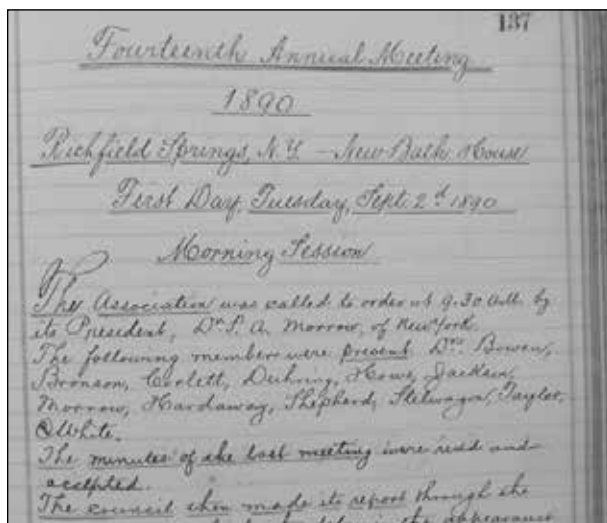 137
Fourteenth Annual Meeting
1890
Richfield Springs, N.Y. – New Bath House
First Day, Tuesday, Sept. 2d 1890
Morning Session
The Association was called to order at 9.30 A.M. by
its President, Dr. P. A. Morrow, of New York.
The following members were present Drs. Bowen,
Bronson, Corlett, Duhring, Howe, Jackson,
Morrow, Hardaway, Shepherd, Stelwagon, Taylor,
& White.
The minutes of the last meeting were read and
accepted.
The council then made its report through the
the appearance